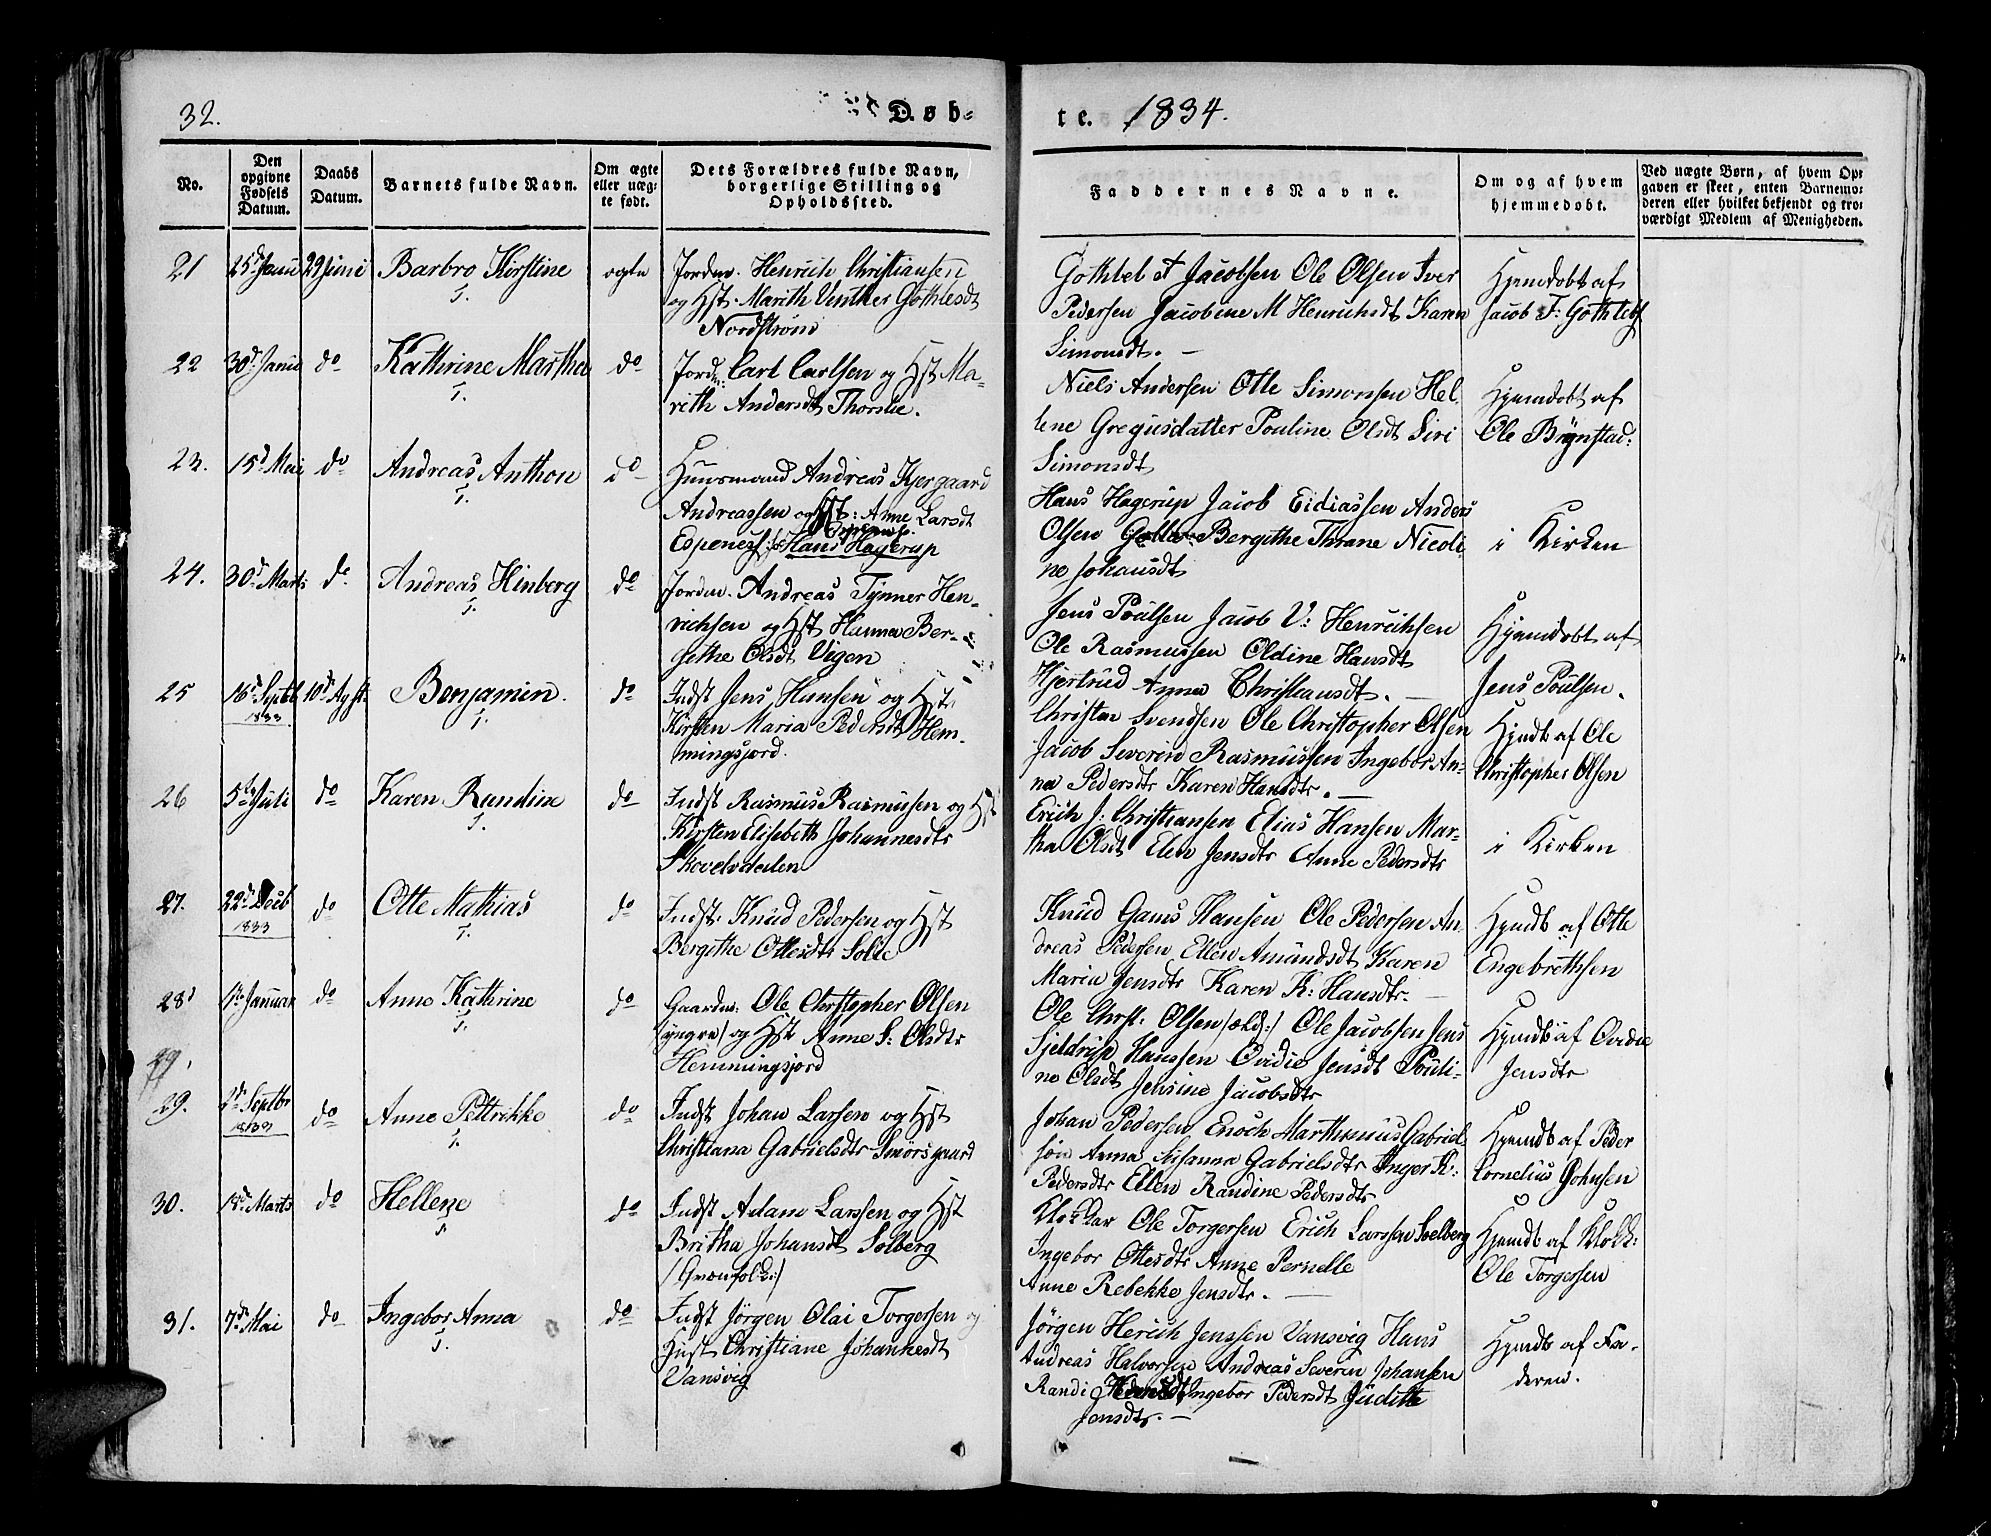 32.
Døb=
te. 1834.
No.
Den opgivne Fødsels Datum.
Daabs Datum.
Barnets fulde Navn.
Om ægte eller uæg= te født.
Dets Forældres fulde Navn, borgerlige Stilling og Opholdssted.
Faddernes Navne.
Om og af hvem hjemmedøbt.
Ved uægte Børn, af hvem Op= gaven er skeet, enten Barnemo= deren eller hvilket bekjendt og tro= værdigt Medlem af Menigheden.
21 25d Janu 29 Juni Barbro Kirstine ægte
Jordm. Henrich Christiansen
og Hst. Marith Venther Gothlesdt
Nordstrøm
Gothlel F Jacobsen Ole Olsen Iver
Pedersen Jacobine M Henrichsdt Karen
Simonsdt.
Hjemdøbt af
Jacob F: Gothlebs
22 30d Janu do Kathrine Martha do
Jordm: Carl Carlsen og Hst Ma-
rith Andersdt Thorske.
Niels Andersen Otte Simonsen Hel-
lene Gregusdatter Pouline Olsdt Siri
Simonsdt
Hjemdøbt af
Ole Brynstad:
23. 15d Mai do Andreas Anthon do
Huusmand Andreas Kjergaard
Andreassen og Hst: Anne Larsdt
Espenes Hans Hagerup
Hans Hagerup Jacob Eidiassen Anders
Olsen Bergithe Thrane Nicoli-
ne Johansdt
i Kirken
24. 30d Marts do Andreas Hinberg do
Jordm. Andreas Tynner Hen-
richsen og Hst Hanna Ber-
gethe Olsdt Vigen
Jens Poulsen Jacob V: Henrichsen
Ole Rasmussen Oldine Hansdt
Hjertrud Anna Christiansdt.
Hjemdøbt af
Jens Poulsen.
25 16d Septb 1833 10d Agst Benjamin. do
Indst Jens Hansen og Hst
Kirsten Maria Pedersdt Hem-
mingsjord.
Christen Svendsen Ole Christopher Olsen
Jacob Severin Rasmussen Ingebor An-
na Pedersdtr Karen Hansdtr.
Hjmdb af Ole
Christopher Olsen
26 5te Juli do Karen Randine do
Indst Rasmus Rasmusen og Hst
Kirsten Elisebeth Johannesdtr
Skovelvdalen
Erich J. Christiansen Elias Hansen Mar-
tha Olsdt Elen Jensdtr Anne Pedersdtr
i Kirken
27. 22d Decb 1833 do Otte Mathias do
Indst. Knud Pedersen og Hst
Bergithe Ottesdtr Solli
Knud Gams Hansen Ole Pedersen An-
dreas Pedersen Ellen Amundsdt Karen
Maria Jensdtr Karen K: Hansdtr.
Hjmdb af Otte
Engebrethsen
28 1te Januar do Anne Kathrine do
Gaardm: Ole Christopher Olsen
/yngre/ og Hst Anne S: Olsdtr
Hemmingsjord
Ole Chrst. Olsen /æld:/ Ole Jacobsen Jens
Sjeldrup Hanssen Ovidie Jensdt Pouli-
ne Olsdt Jensine Jacobsdtr
Hjmdb af Ovidie
Jensdtr
29.
29. 2d Septbr 1833 do Anne Pettrikke do
Indst Johan Larsen og Hst
Christiana Gabrielsdtr Smörsgaard
Johan Pedersen Enoch Marthinius Gabriel-
søn Anna Susanna Gabrielsdtr Inger K:
Pedersdtr Ellen Randine Pedersdtr
Hjemdb af Peder
Cornelius Johnsen
30. 18d Marts do Hellene do
Indst Adam Larssen og Hst
Britha Johansdt Solberg
/Qvænfolk:/
Klokkar Ole Torgersen Erich Larssen Soelberg
Ingebor Ottesdtr Anne Pernelle
Anne Rebekke Jensdtr.
Hjemdb af Klokk:
Ole Torgersen
31. 7d Mai do Ingebor Anna do
Indst Jörgen Olai Torgersen og
Hust Christiane Johannesdt
Vansvig
Jörgen Herich Jenssen Vansvig Hans
Andreas Halvorsen Andreas Severin Johansen
Randi Ingebor Pedersdt Judithe
Jensdtr.
Hjemdb af Fa-
deren.